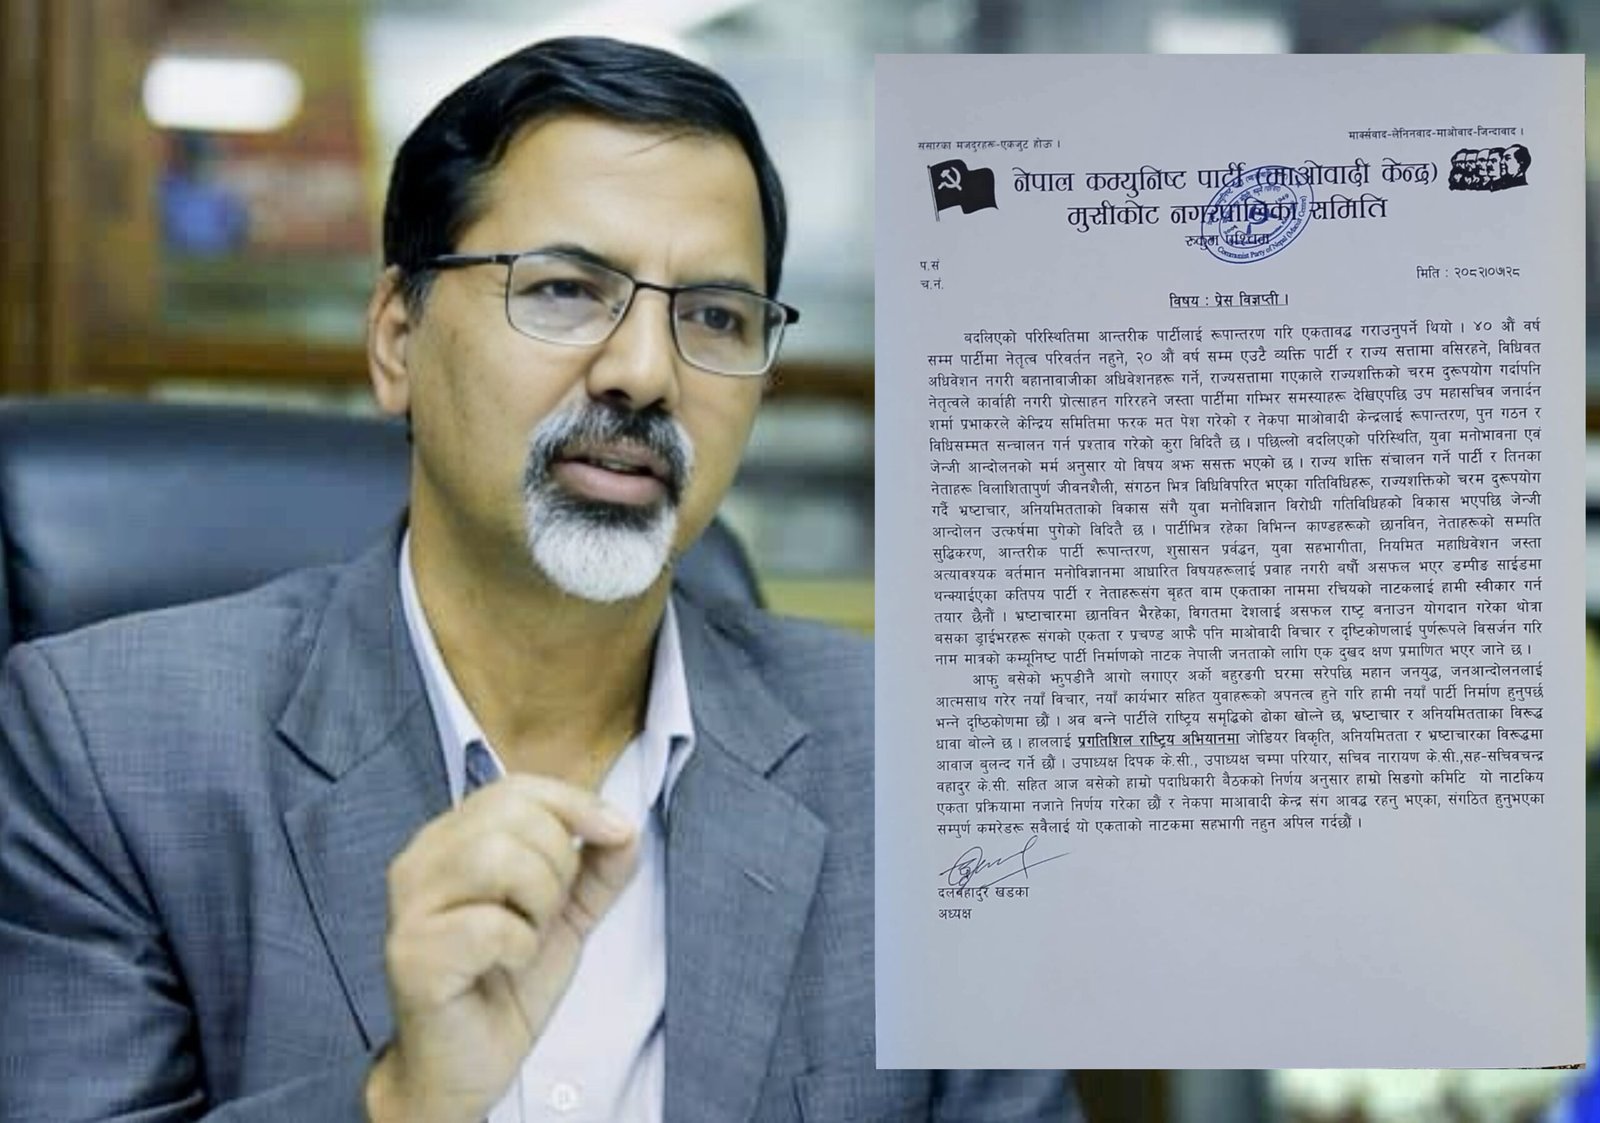 संसारका मजदुरहरू-एकजुट होऊ ।
मार्क्सवाद-लेनिनवाद-माओवाद-जिन्दावाद ।
नेपाल कम्युनिष्ट पार्टी (माओवादी केन्द्र)
मुसीकोट नगरपालिका समिति
रुकुम पश्चिम
Communist Party of Nepal (Maoist Centre)
प.सं
च.नं.
मिति : २०८२।०७।२८
विषय : प्रेस विज्ञप्ती ।
बदलिएको परिस्थितिमा आन्तरीक पार्टीलाई रूपान्तरण गरि एकतावद्ध गराउनुपर्ने थियो । ४० औं वर्ष
सम्म पार्टीमा नेतृत्व परिवर्तन नहुने, २० औं वर्ष सम्म एउटै व्यक्ति पार्टी र राज्य सत्तामा वसिरहने, विधिवत
अधिवेशन नगरी बहानावाजीका अधिवेशनहरू गर्ने, राज्यसत्तामा गएकाले राज्यशक्तिको चरम दुरूपयोग गर्दापनि
नेतृत्वले कार्वाही नगरी प्रोत्साहन गरिरहने जस्ता पार्टीमा गम्भिर समस्याहरू देखिएपछि उप महासचिव जनार्दन
शर्मा प्रभाकरले केन्द्रिय समितिमा फरक मत पेश गरेको र नेकपा माओवादी केन्द्रलाई रूपान्तरण, पुन गठन र
विधिसम्मत सन्चालन गर्न प्रश्ताव गरेको कुरा विदितै छ । पछिल्लो बदलिएको परिस्थिति, युवा मनोभावना एवं
जेन्जी आन्दोलनको मर्म अनुसार यो विषय अझ ससक्त भएको छ । राज्य शक्ति संचालन गर्ने पार्टी र तिनका
नेताहरू विलाशितापुर्ण जीवनशैली, संगठन भित्र विधिविपरित भएका गतिविधिहरू, राज्यशक्तिको चरम दुरूपयोग
गर्दै भ्रष्टाचार, अनियमितताको विकास संगै युवा मनोविज्ञान विरोधी गतिविधिहको विकास भएपछि जेन्जी
आन्दोलन उत्कर्षमा पुगेको विदितै छ । पार्टीभित्र रहेका विभिन्न काण्डहरूको छानविन, नेताहरूको सम्पति
सुद्धिकरण, आन्तरीक पार्टी रूपान्तरण, शुसासन प्रर्वद्धन, युवा सहभागीता, नियमित महाधिवेशन जस्ता
अत्यावश्यक बर्तमान मनोविज्ञानमा आधारित विषयहरूलाई प्रवाह नगरी बर्षौं असफल भएर डम्पीङ साईडमा
थन्क्याईएका कतिपय पार्टी र नेताहरूसंग बृहत वाम एकताका नाममा रचियको नाटकलाई हामी स्वीकार गर्न
तयार छैनौं । भ्रष्टाचारमा छानविन भैरहेका, विगतमा देशलाई असफल राष्ट्र बनाउन योगदान गरेका थोत्रा
बसका ड्राईभरहरू संगको एकता र प्रचण्ड आफै पनि माओवादी विचार र दृष्टिकोणलाई पुर्णरूपले विसर्जन गरि
नाम मात्रको कम्यूनिष्ट पार्टी निर्माणको नाटक नेपाली जनताको लागि एक दुखद क्षण प्रमाणित भएर जाने छ ।
आफु बसेको झुपडीनै आगो लगाएर अर्को बहुरङगी घरमा सरेपछि महान जनयुद्ध, जनआन्दोलनलाई
आत्मसाथ गरेर नयाँ विचार, नयाँ कार्यभार सहित युवाहरूको अपनत्व हुने गरि हामी नयाँ पार्टी निर्माण हुनुपर्छ
भन्ने दृष्ठिकोणमा छौं । अव बन्ने पार्टीले राष्ट्रिय समृद्धिको ढोका खोल्ने छ, भ्रष्टाचार र अनियमितताका विरूद्ध
धावा बोल्ने छ । हाललाई प्रगतिशिल राष्ट्रिय अभियानमा जोडियर विकृति, अनियमितता र भ्रष्टाचारका विरूद्धमा
आवाज बुलन्द गर्ने छौं । उपाध्यक्ष दिपक के.सी., उपाध्यक्ष चम्पा परियार, सचिव नारायण के.सी.,सह-सचिवचन्द्र
वहादुर के.सी. सहित आज बसेको हाम्रो पदाधिकारी बैठकको निर्णय अनुसार हाम्रो सिङगो कमिटि यो नाटकिय
एकता प्रक्रियामा नजाने निर्णय गरेका छौं र नेकपा माआवादी केन्द्र संग आवद्ध रहनु भएका, संगठित हुनुभएका
सम्पुर्ण कमरेडरू सवैलाई यो एकताको नाटकमा सहभागी नहुन अपिल गर्दछौं ।
दलबहादुर खडका
अध्यक्ष